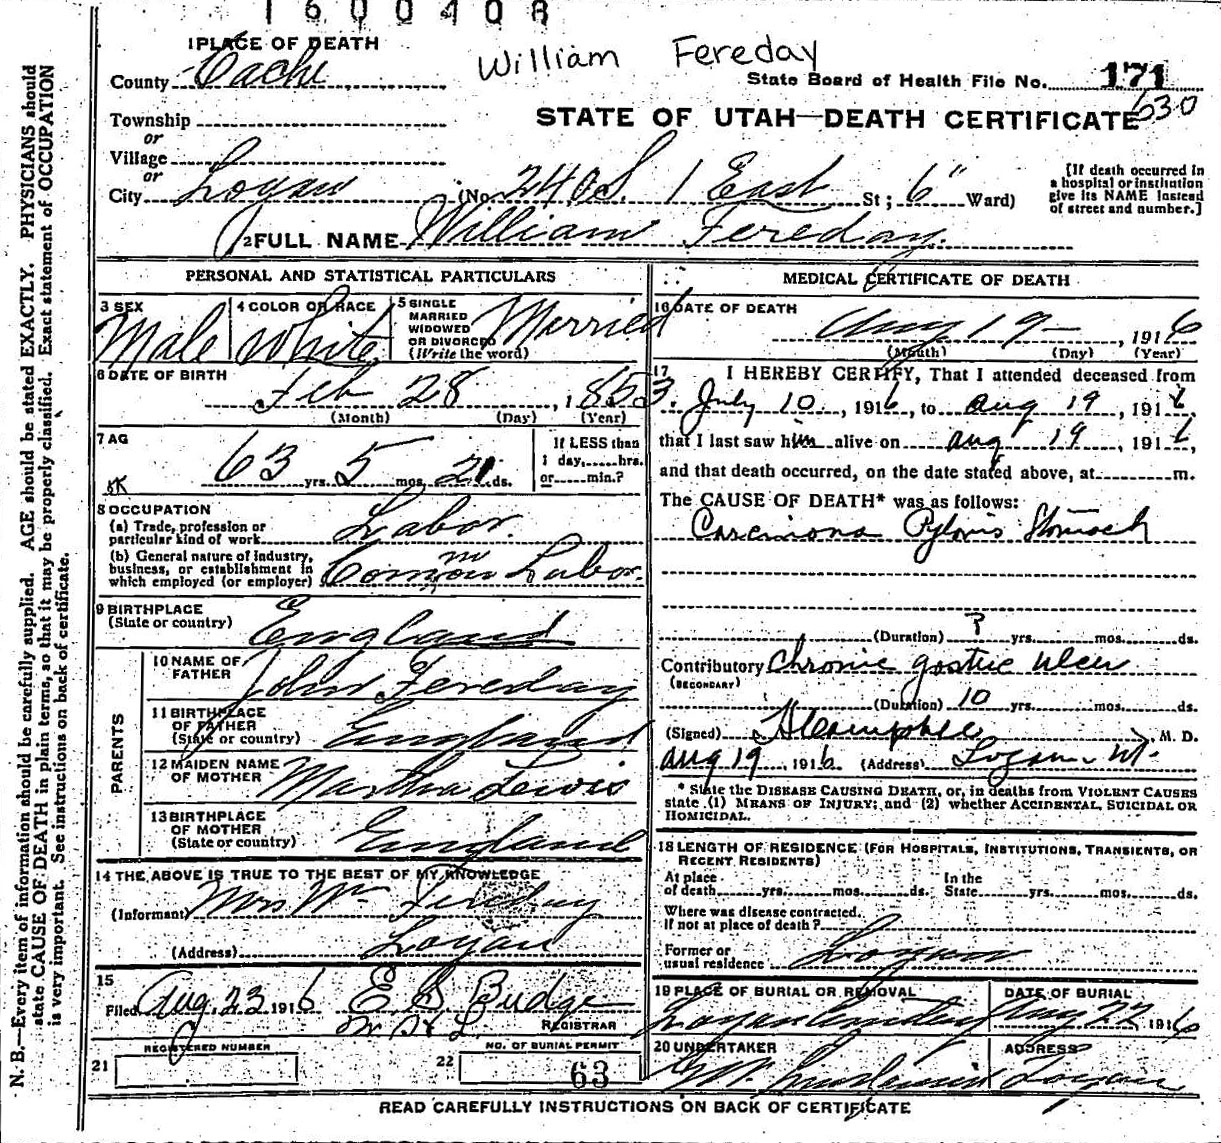 1600408
William Fereday
1 PLACE OF DEATH
County Cache
State Board of Health File No. 171
630
STATE OF UTAH—DEATH CERTIFICATE
Township
or
Village
or
City Logan (No. 240 S. 1 East St; 6" Ward)
[If death occurred in
a hospital or institution
give its NAME instead
of street and number.]
2 FULL NAME William Fereday.
PERSONAL AND STATISTICAL PARTICULARS
3 SEX
Male
4 COLOR OR RACE
White
5 SINGLE
MARRIED
WIDOWED
OR DIVORCED
(Write the word)
Married
6 DATE OF BIRTH
Feb 28, 1853
(Month) (Day) (Year)
7 AG
63 yrs. 5 mos. 21 ds.
If LESS than
1 day,......hrs.
or......min.?
OK
8 OCCUPATION
(a) Trade, profession or
particular kind of work Labor.
(b) General nature of industry,
business, or establishment in
which employed (or employer) Common Labor.
9 BIRTHPLACE
(State or country) England
PARENTS
10 NAME OF
FATHER John Fereday
11 BIRTHPLACE
OF FATHER
(State or country) England
12 MAIDEN NAME
OF MOTHER Martha Lewis
13 BIRTHPLACE
OF MOTHER
(State or country) England
14 THE ABOVE IS TRUE TO THE BEST OF MY KNOWLEDGE
(Informant) Mrs Wm Fereday
(Address) Logan
15
Filed Aug. 23 1916 E S Budge
REGISTRAR
REGISTERED NUMBER
21
NO. OF BURIAL PERMIT
22 63
MEDICAL CERTIFICATE OF DEATH
16 DATE OF DEATH
Aug 19, 1916
(Month) (Day) (Year)
17 I HEREBY CERTIFY, That I attended deceased from
July 10, 1916, to Aug 19, 1916,
that I last saw him alive on Aug 19, 1916,
and that death occurred, on the date stated above, at......m.
The CAUSE OF DEATH* was as follows:
Carcinona Pyloris Stomach
(Duration) ? yrs. mos. ds.
Contributory Chronic gastric ulcer
(SECONDARY)
(Duration) 10 yrs. mos. ds.
(Signed) M. D.
Aug 19, 1916 (Address) Logan Ut.
* State the DISEASE CAUSING DEATH, or, in deaths from VIOLENT CAUSES
state (1) MEANS OF INJURY; and (2) whether ACCIDENTAL, SUICIDAL OR
HOMICIDAL.
18 LENGTH OF RESIDENCE (FOR HOSPITALS, INSTITUTIONS, TRANSIENTS, OR
RECENT RESIDENTS)
At place
of death......yrs......mos......ds.
In the
State......yrs......mos......ds.
Where was disease contracted.
If not at place of death?
Former or
usual residence Logan
19 PLACE OF BURIAL OR REMOVAL
Logan Cemetery
DATE OF BURIAL
Aug 22, 1916
20 UNDERTAKER
ADDRESS
Logan
READ CAREFULLY INSTRUCTIONS ON BACK OF CERTIFICATE
N. B.—Every item of information should be carefully supplied. AGE should be stated EXACTLY. PHYSICIANS should
state CAUSE OF DEATH in plain terms, so that it may be properly classified. Exact statement of OCCUPATION
is very important. See instructions on back of certificate.